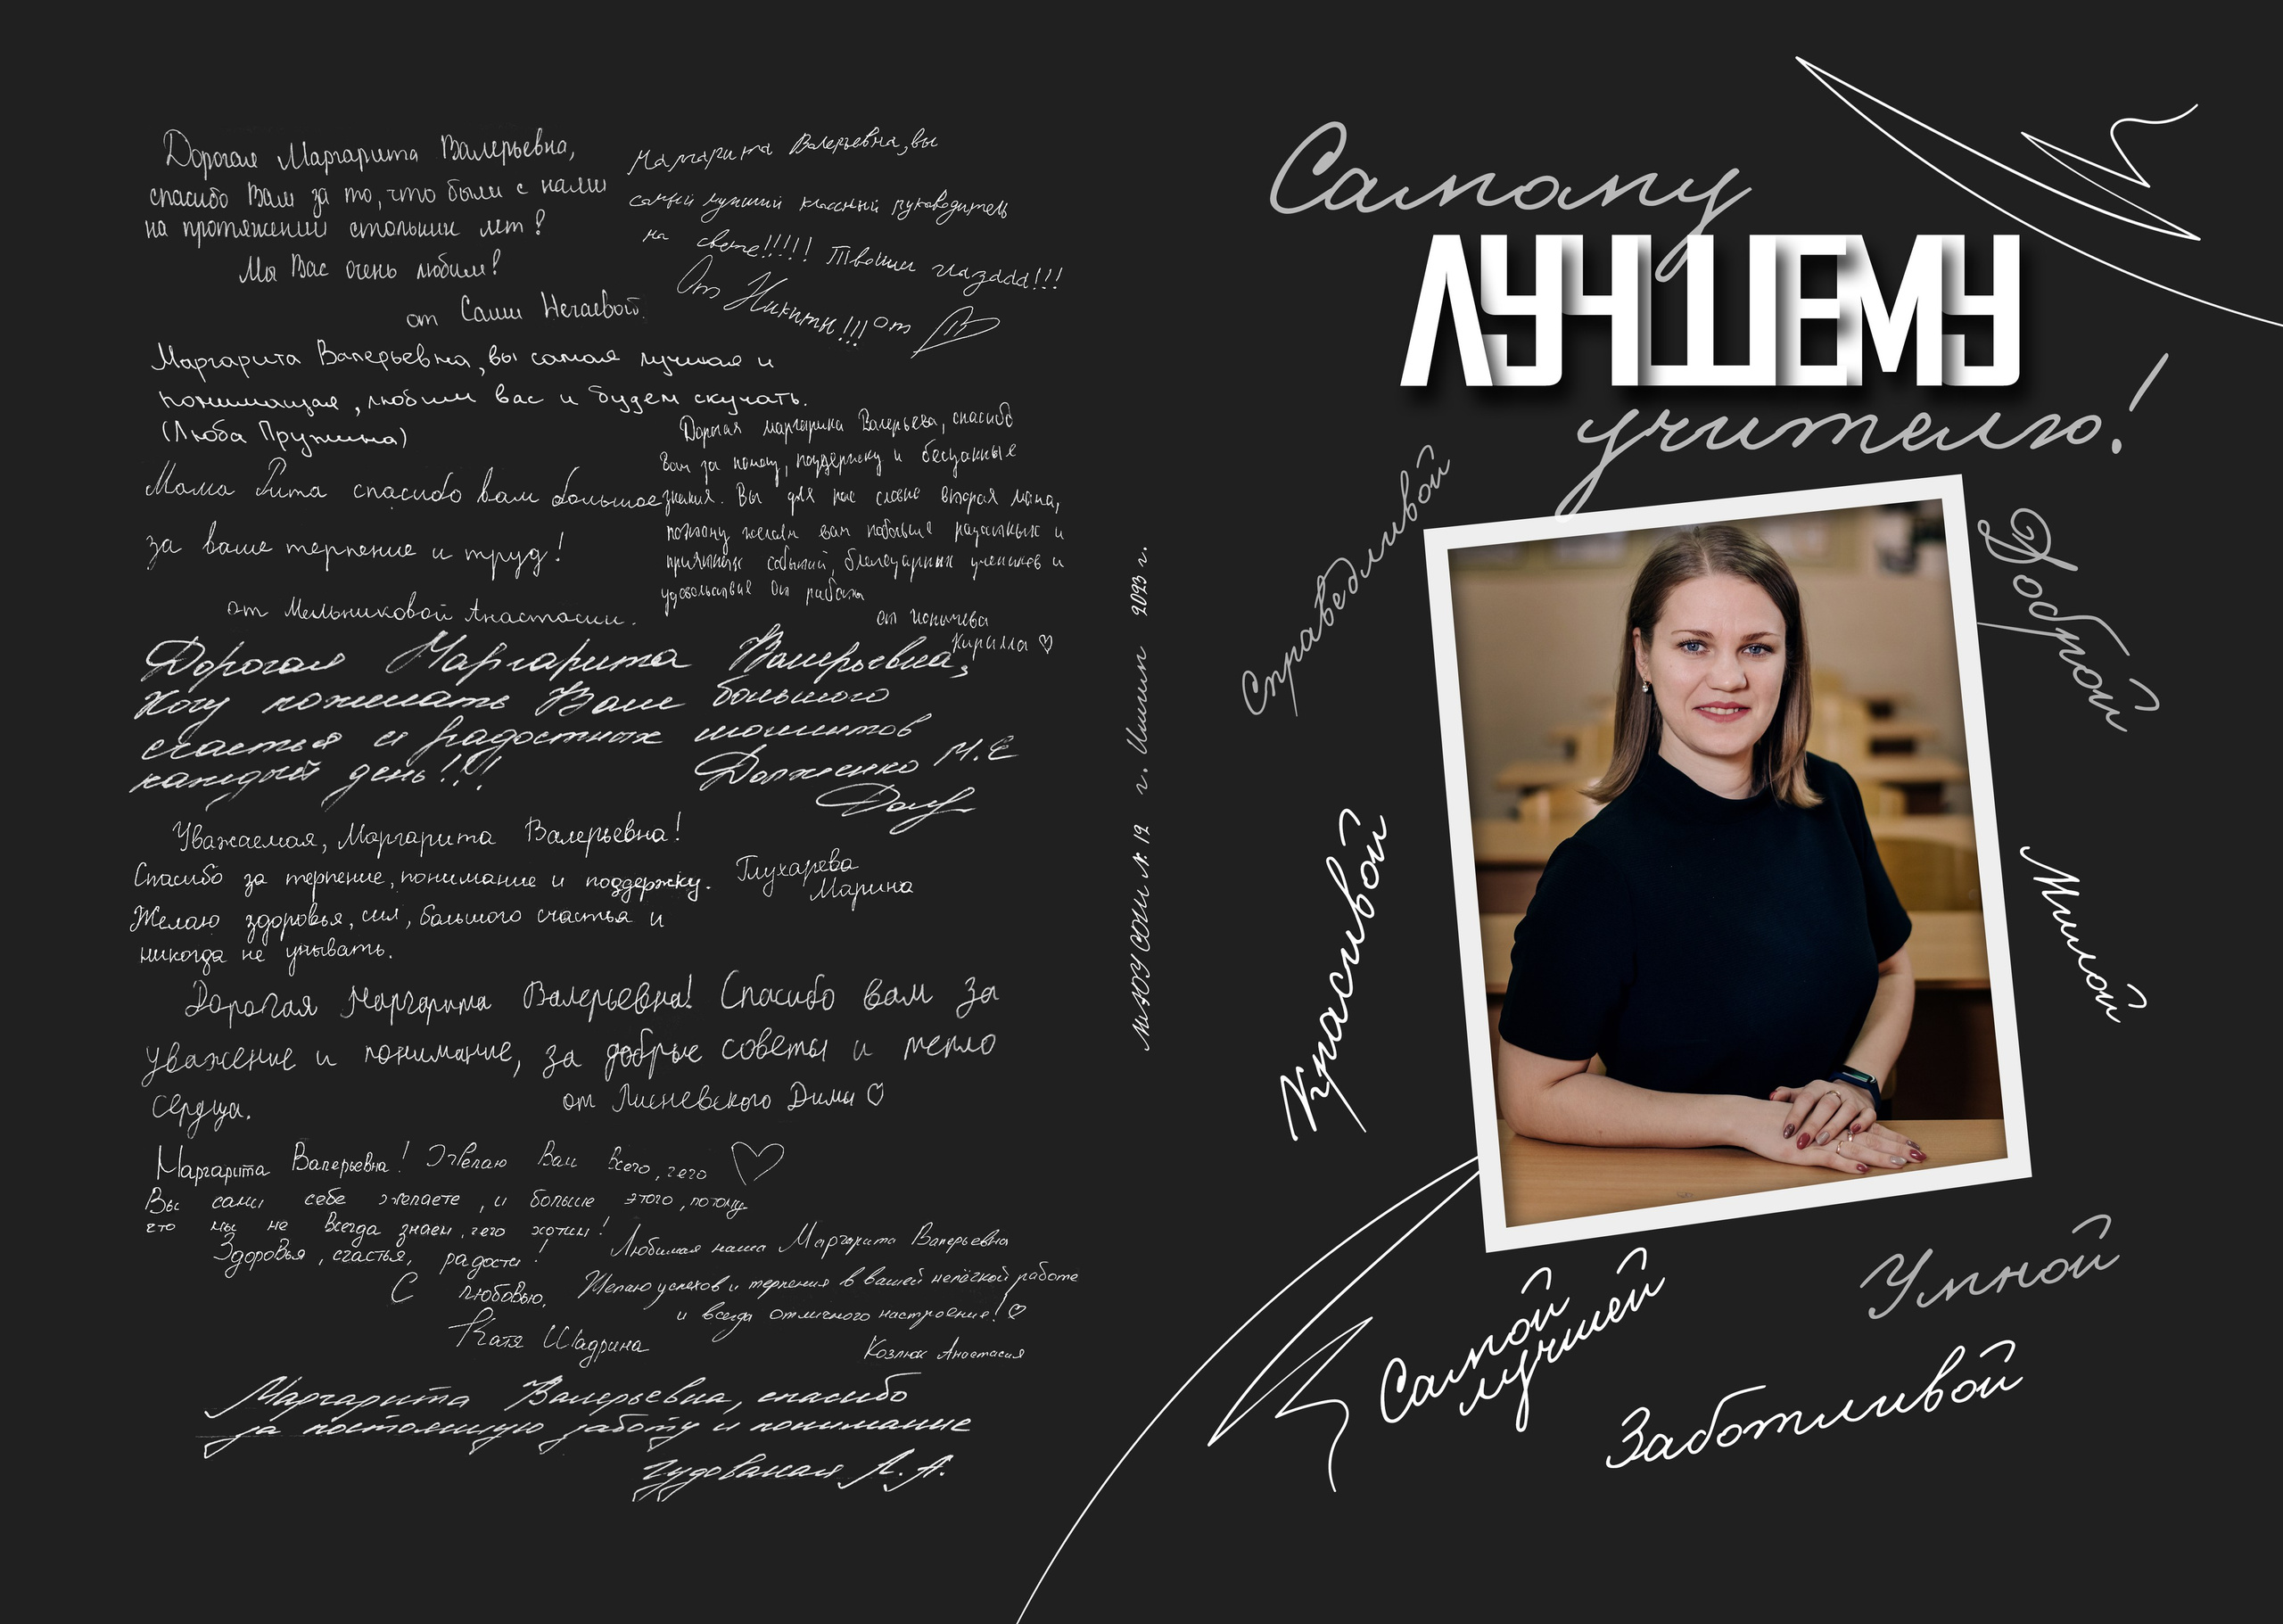 Дорогая Маргарита Валерьевна,
спасибо Вам за то, что были с нами
на протяжении стольких лет!
Мы Вас очень любим!
от Саши Нечаевой.
Маргарита Валерьевна, вы
самый лучший классный руководитель
на свете!!!!! Твоими глазааа!!!
От Никиты!!! от
Маргарита Валерьевна, вы самая лучшая и
понимащая, любим вас и будем скучать.
(Люба Пружина)
Дорогая маргарита Валерьева, спасибо
вам за помощ, поддержку и бесценные
знания. Вы для нас словно вторая мама,
поэтому желаем вам побольше радостных и
приятных событий, благодарных учеников и
удовольствие от работы
от
Кирилла
Мама Рита спасибо вам большое
за ваше терпение и труд!
от Мельниковой Анастасии.
Дорогая Маргарита Валерьевна,
Хочу пожелать Вам большого
счастья и радостных моментов
каждый день!!!
Долженко М.Е
Уважаемая, Маргарита Валерьевна!
Спасибо за терпение, понимание и поддержку.
Желаю здоровья, сил, большого счастья и
никогда не унывать.
Глухарева
Марина
Дорогая Маргарита Валерьевна! Спасибо вам за
уважение и понимание, за добрые советы и тепло
сердца.
от Лисневского Димы
Маргарита Валерьевна! Желаю Вам всего, чего
Вы сами себе желаете, и больше этого, потому
что мы не всегда знаем, чего хотим!
Здоровья, счастья, радости!
С любовью,
Катя Шадрина
Любимая наша Маргарита Валерьевна
Желаю успехов и терпения в вашей нелёгкой работе
и всегда отличного настроение!
Козлюк Анастасия
Маргарита Валерьевна, спасибо
за постоянную заботу и понимание
Чудованая Л.А.
МАОУ СОШ № 12 г. Ишим 2023 г.
Самому
ЛУЧШЕМУ
учителю!
Справедливой
Доброй
Красивой
Милой
Самой
лучшей
Умной
Заботливой